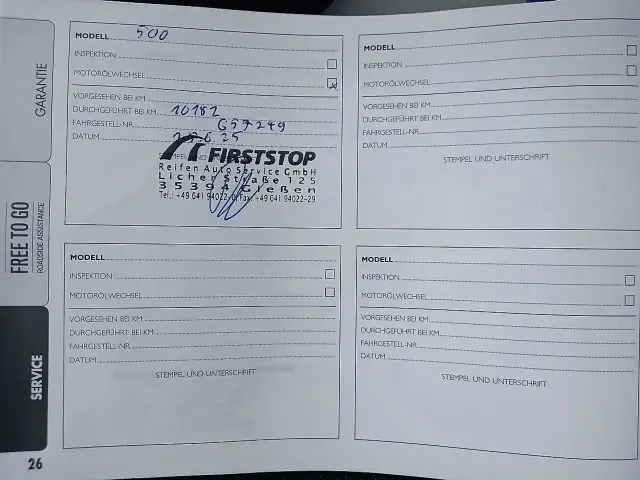 GARANTIE
FREE TO GO
ROADSIDE ASSISTANCE
SERVICE
26
MODELL 500
INSPEKTION
MOTORÖLWECHSEL
VORGESEHEN BEI KM
DURCHGEFÜHRT BEI KM 10182
FAHRGESTELL-NR. G57249
DATUM
FIRSTSTOP
Reifen Auto Service GmbH
Licher Straße 125
35394 Gießen
Tel.: +49 641 94022-0 Fax: +49 641 94022-29
MODELL
INSPEKTION
MOTORÖLWECHSEL
VORGESEHEN BEI KM
DURCHGEFÜHRT BEI KM
FAHRGESTELL-NR.
DATUM
STEMPEL UND UNTERSCHRIFT
MODELL
INSPEKTION
MOTORÖLWECHSEL
VORGESEHEN BEI KM
DURCHGEFÜHRT BEI KM
FAHRGESTELL-NR.
DATUM
STEMPEL UND UNTERSCHRIFT
MODELL
INSPEKTION
MOTORÖLWECHSEL
VORGESEHEN BEI KM
DURCHGEFÜHRT BEI KM
FAHRGESTELL-NR.
DATUM
STEMPEL UND UNTERSCHRIFT